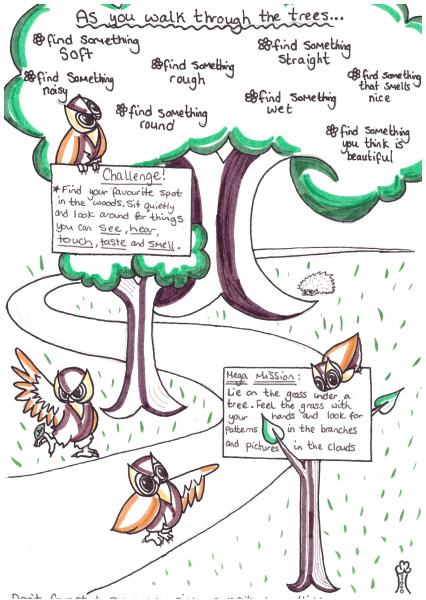 As you walk through the trees...
find something
soft
find something
straight
find something
rough
find something
noisy
find something
that smells
nice
find something
round
find something
wet
find something
you think is
beautiful
Challenge!
* Find your favourite spot
in the woods. Sit quietly
and look around for things
you can see, hear,
touch, taste and smell.
Mega Mission:
Lie on the grass under a
tree. Feel the grass with
your hands and look for
patterns in the branches
and pictures in the clouds